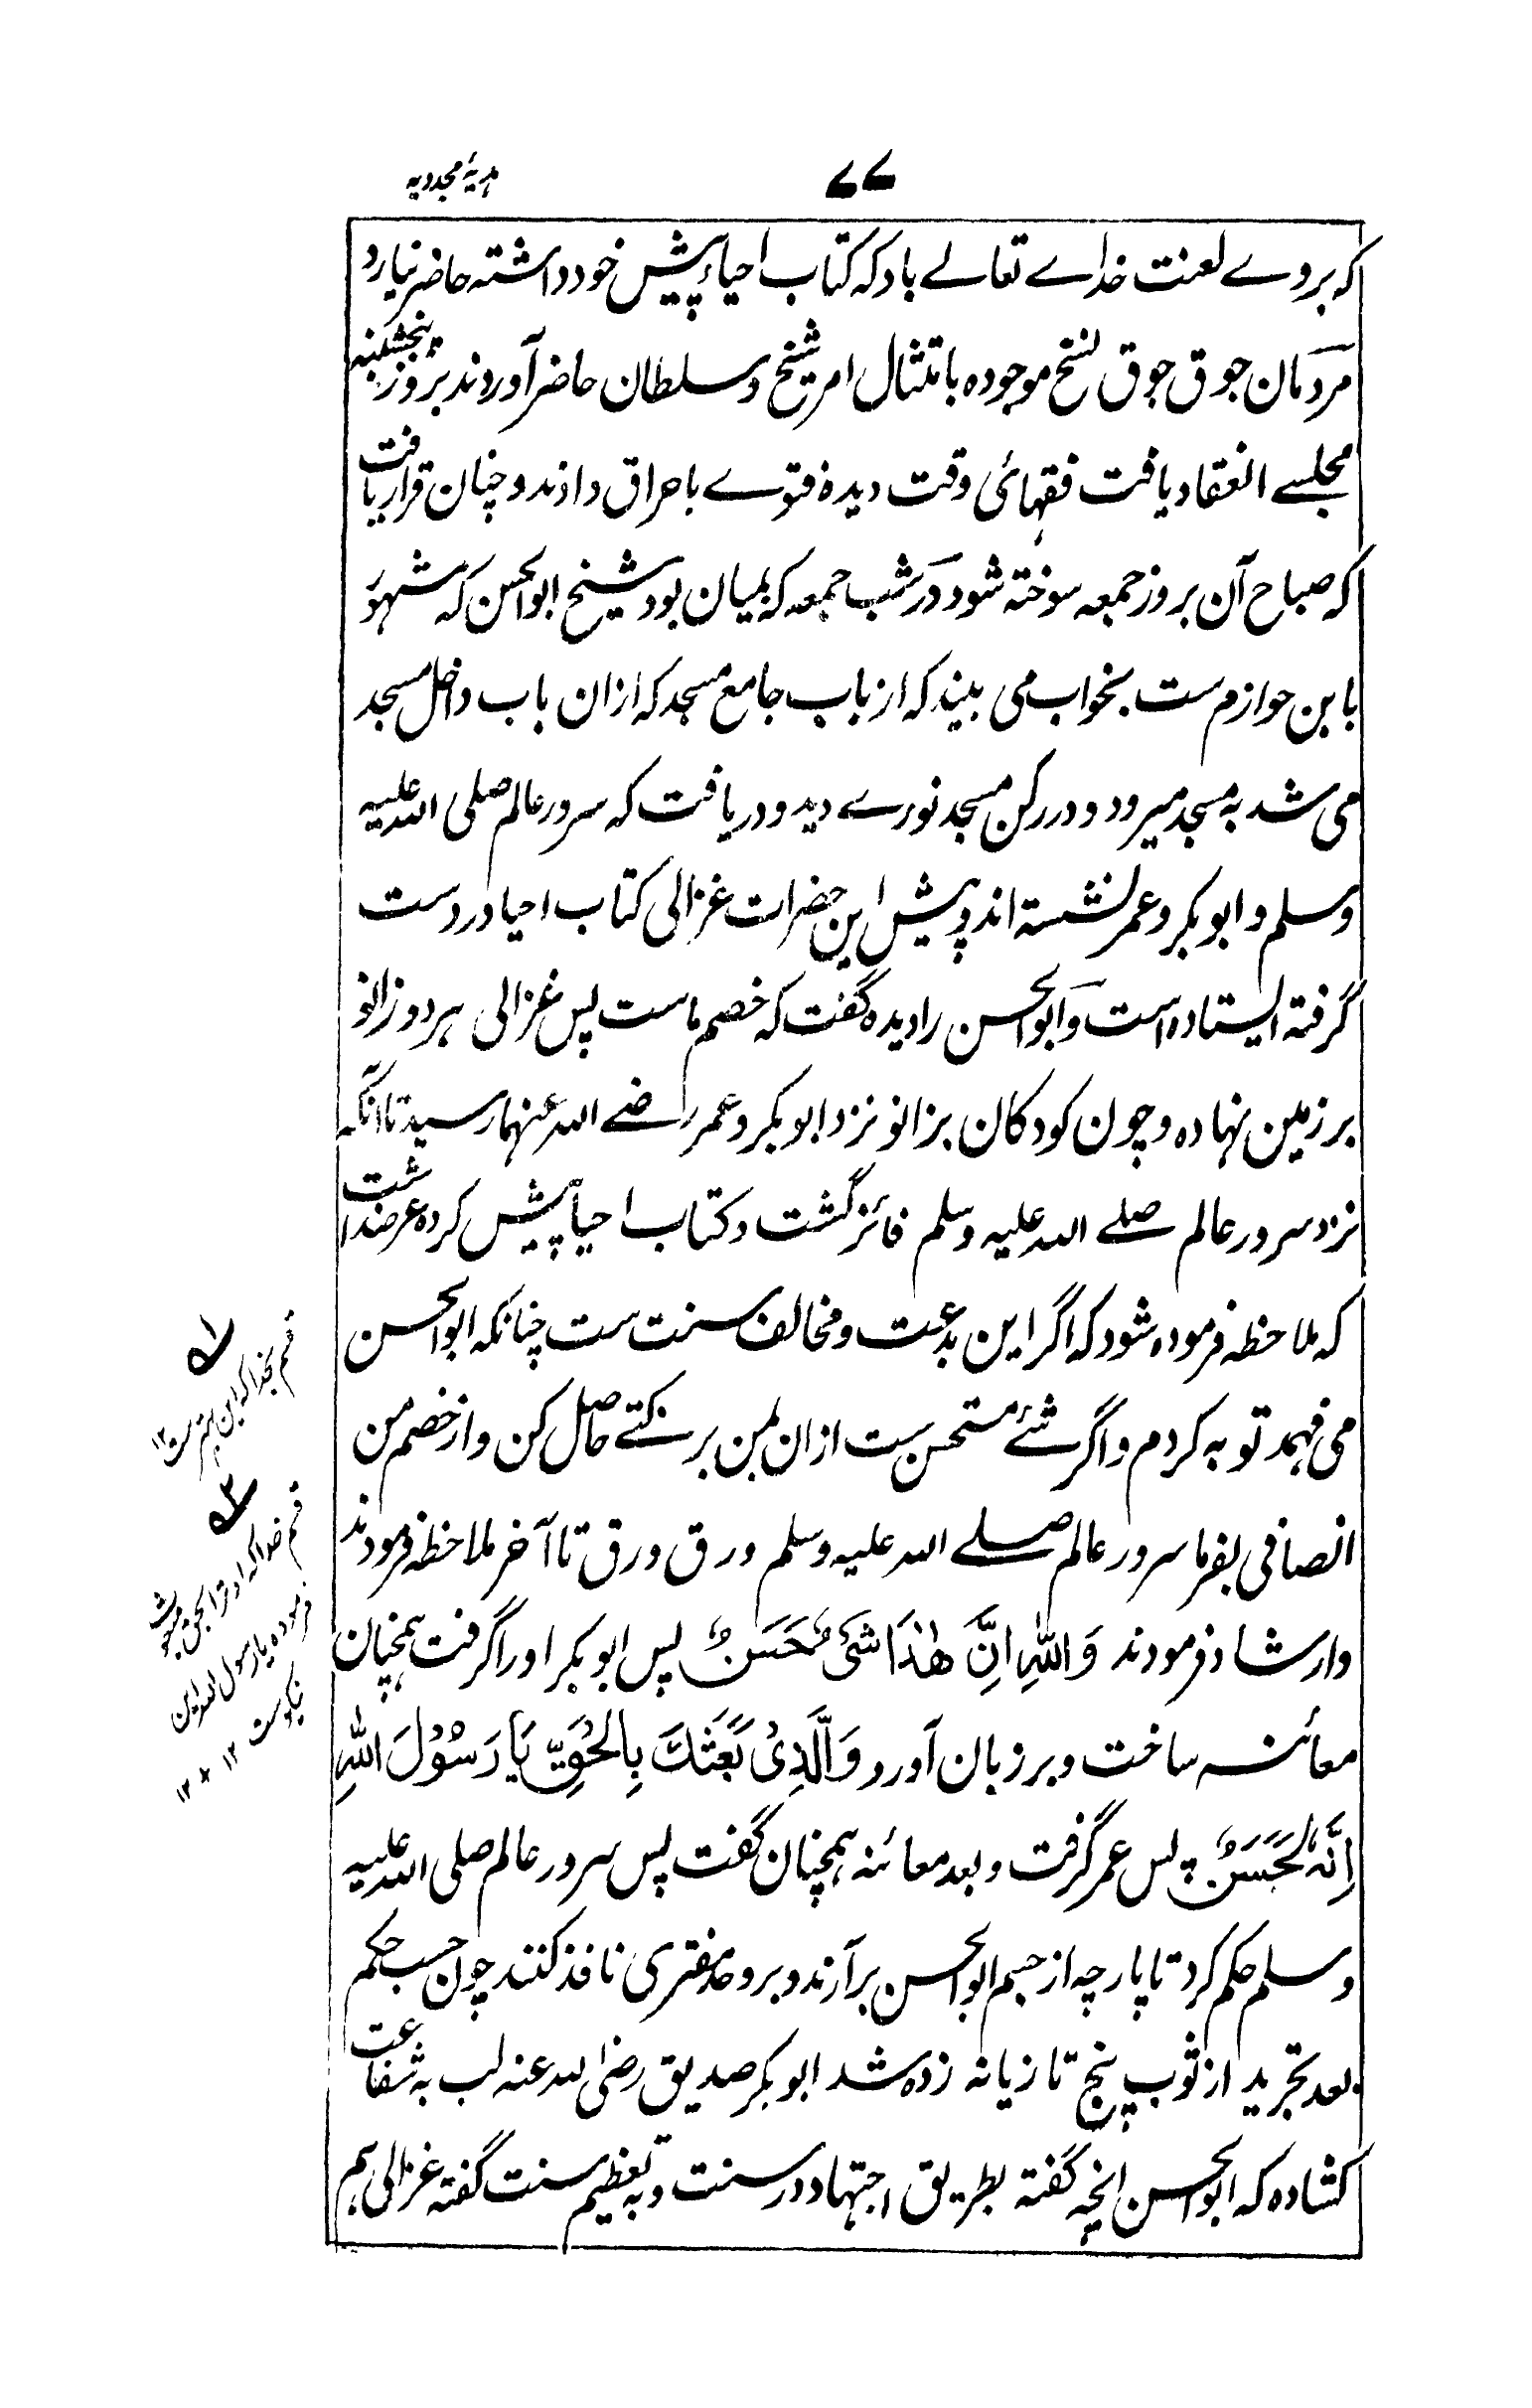 ۷۷
ہدیۂ مجددیہ
کہ بروے لعنت خداے تعالے باد کہ کتاب احیاء پیش خود داشتہ حاضر نیارد
مردمان جوق جوق نسخ موجودہ بامتثال امر شیخ و سلطان حاضر آوردند بروز پنجشنبہ
مجلسے انعقاد یافت فقہائی وقت دیدہ فتوے باحراق دادند و چنان قرار یافت
کہ صباح آن بروز جمعہ سوختہ شود در شب جمعہ کہ بمیان بود شیخ ابوالحسن کہ مشہور
بابن حوازم ست بخواب می بیند کہ از باب جامع مسجد کہ ازان باب داخل مسجد
می شد بہ مسجد میرود و در رکن مسجد نورے دید و دریافت کہ سرور عالم صلی اللہ علیہ
وسلم و ابوبکر و عمر نشستہ اند و پیش این حضرات غزالی کتاب احیا در دست
گرفتہ ایستادہ است و ابوالحسن را دیدہ گفت کہ خصم ماست پس غزالی ہر دو زانو
بر زمین نہادہ و چون کودکان بزانو نزد ابوبکر و عمر رضے اللہ عنہما رسید تا آنکہ
نزد سرور عالم صلے اللہ علیہ وسلم فائز گشت و کتاب احیاء پیش کردہ عرضداشت
کہ ملاحظہ فرمودہ شود کہ اگر این بدعت و مخالف سنت ست چنانکہ ابوالحسن
می فہمد توبہ کردم و اگر شئے مستحسن ست ازان بمن برکتے حاصل کن و از خصم من
انصافی بفرما سرور عالم صلے اللہ علیہ وسلم ورق ورق تا آخر ملاحظہ فرمودند
وارشاد فرمودند وَاللّٰهِ اِنَّ هٰذَا شَیْءٌ حَسَنٌ پس ابوبکر او را گرفت ہمچنان
معائنہ ساخت و بر زبان آورد وَالَّذِیْ بَعَثَكَ بِالْحَقِّ یَا رَسُوْلَ اللّٰهِ
اِنَّهٗ لَحَسَنٌ پس عمر گرفت و بعد معائنہ ہمچنان گفت پس سرور عالم صلی اللہ علیہ
وسلم حکم کرد تا پارچہ از جسم ابوالحسن برآرند و بر و حد مفتری نافذ کنند چون حسب حکم
بعد تجرید از ثوب پنج تازیانہ زدہ شد ابوبکر صدیق رضی اللہ عنہ لب بہ شفاعت
کشادہ کہ ابوالحسن انچہ گفتہ بطریق اجتہاد در سنت و بہ تعظیم سنت گفتہ غزالی ہم
۱
قسم بخدا کہ این بہتر ست ۱۲
۲
قسم خدا کہ او ترا بحق مبعوث
فرمودہ یا رسول اللہ این
نیکوست ۱۲ + ۱۲